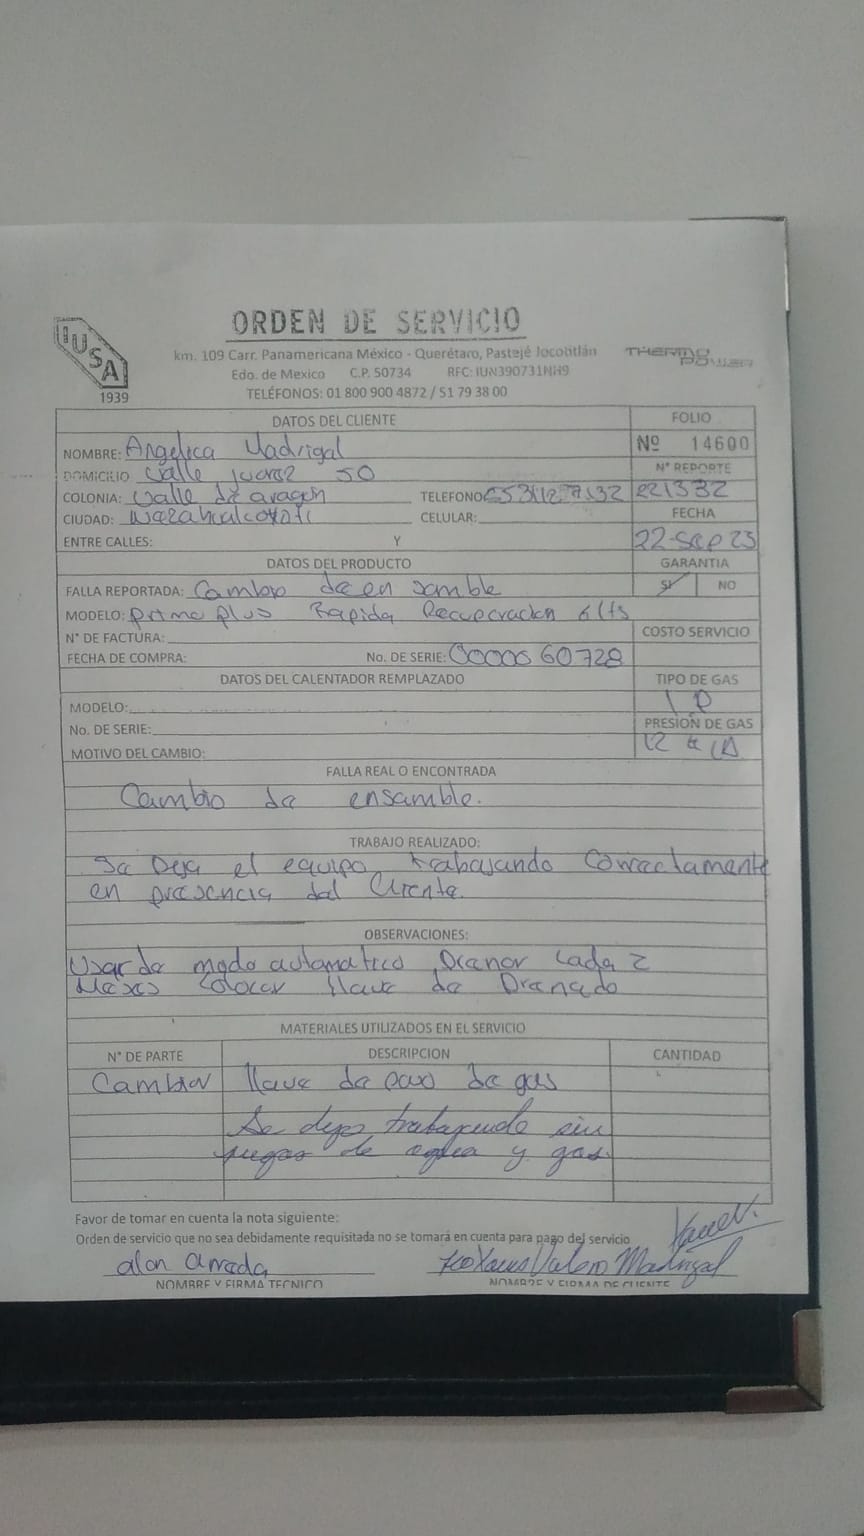 IUSA
1939
ORDEN DE SERVICIO
km. 109 Carr. Panamericana México - Querétaro, Pastejé Jocotitlán
Edo. de Mexico C.P. 50734 RFC: IUN390731NH9
TELÉFONOS: 01 800 900 4872 / 51 79 38 00
THERMO POWER
DATOS DEL CLIENTE FOLIO
NOMBRE: Angelica Madrigal Nº 14600
DOMICILIO Calle Juarez 50 N° REPORTE
COLONIA: Valle de aragon TELEFONO 221332
CIUDAD: Nezahualcoyotl CELULAR: FECHA
ENTRE CALLES: Y 22-Sep 23
DATOS DEL PRODUCTO GARANTIA
FALLA REPORTADA: Cambio de en samble SI NO
MODELO: prime plus Rapida Recuperacion 6 lts
N° DE FACTURA: COSTO SERVICIO
FECHA DE COMPRA: No. DE SERIE: 0000060728
DATOS DEL CALENTADOR REMPLAZADO TIPO DE GAS
MODELO: LP
No. DE SERIE: PRESIÓN DE GAS
MOTIVO DEL CAMBIO: 12
FALLA REAL O ENCONTRADA
Cambio de ensamble.
TRABAJO REALIZADO:
Se Deja el equipo trabajando Correctamente
en presencia del Cliente.
OBSERVACIONES:
Usar de modo automatico Drenar Cada 2
Meses Colocar llave de Drenado
MATERIALES UTILIZADOS EN EL SERVICIO
N° DE PARTE DESCRIPCION CANTIDAD
Cambiar llave de paso de gas
Se dejo trabajando sin
fugas de agua y gas.
Favor de tomar en cuenta la nota siguiente:
Orden de servicio que no sea debidamente requisitada no se tomará en cuenta para pago del servicio
Valero Madrigal
NOMBRE Y FIRMA TECNICO NOMBRE Y FIRMA DE CLIENTE